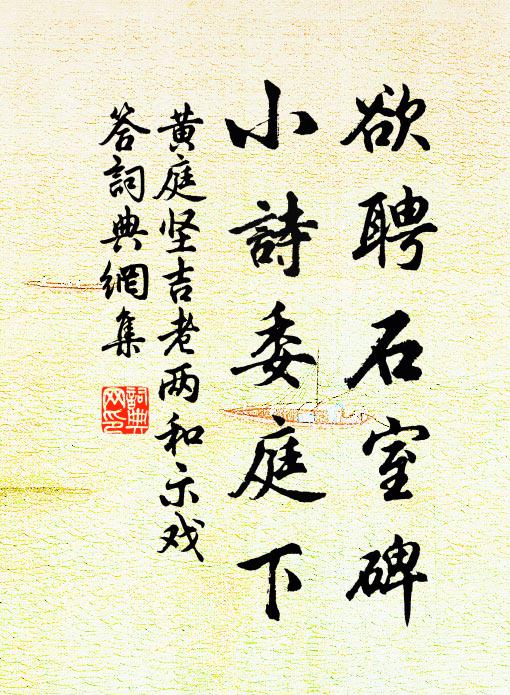 欲聘石室碑
小詩委庭下
黄庭坚吉老两和示戏
答詞典網集
詞典
网印